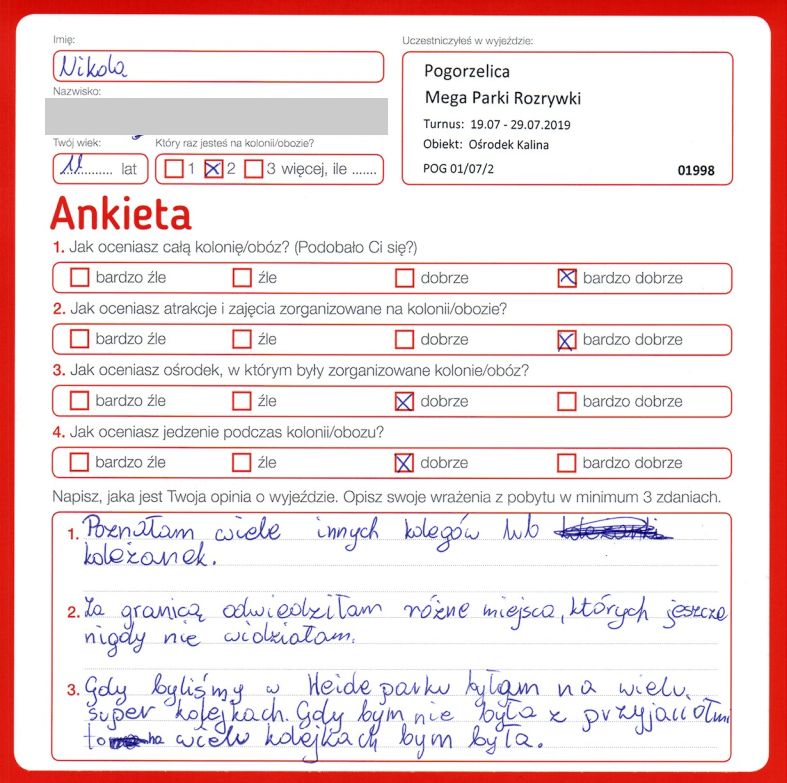 Imię:
Nikola
Nazwisko:
Twój wiek:
11 lat
Który raz jesteś na kolonii/obozie?
1 2 3 więcej, ile .......
Uczestniczyłeś w wyjeździe:
Pogorzelica
Mega Parki Rozrywki
Turnus: 19.07 - 29.07.2019
Obiekt: Ośrodek Kalina
POG 01/07/2 01998
Ankieta
1. Jak oceniasz całą kolonię/obóz? (Podobało Ci się?)
bardzo źle źle dobrze bardzo dobrze
2. Jak oceniasz atrakcje i zajęcia zorganizowane na kolonii/obozie?
bardzo źle źle dobrze bardzo dobrze
3. Jak oceniasz ośrodek, w którym były zorganizowane kolonie/obóz?
bardzo źle źle dobrze bardzo dobrze
4. Jak oceniasz jedzenie podczas kolonii/obozu?
bardzo źle źle dobrze bardzo dobrze
Napisz, jaka jest Twoja opinia o wyjeździe. Opisz swoje wrażenia z pobytu w minimum 3 zdaniach.
1. Poznałam wiele innych kolegów lub
koleżanek.
2. Za granicą odwiedziłam różne miejsca, których jeszcze
nigdy nie widziałam.
3. Gdy byliśmy w Heide parku byłam na wielu
super kolejkach. Gdy bym nie była z przyjaciółmi
to na wielu kolejkach bym była.